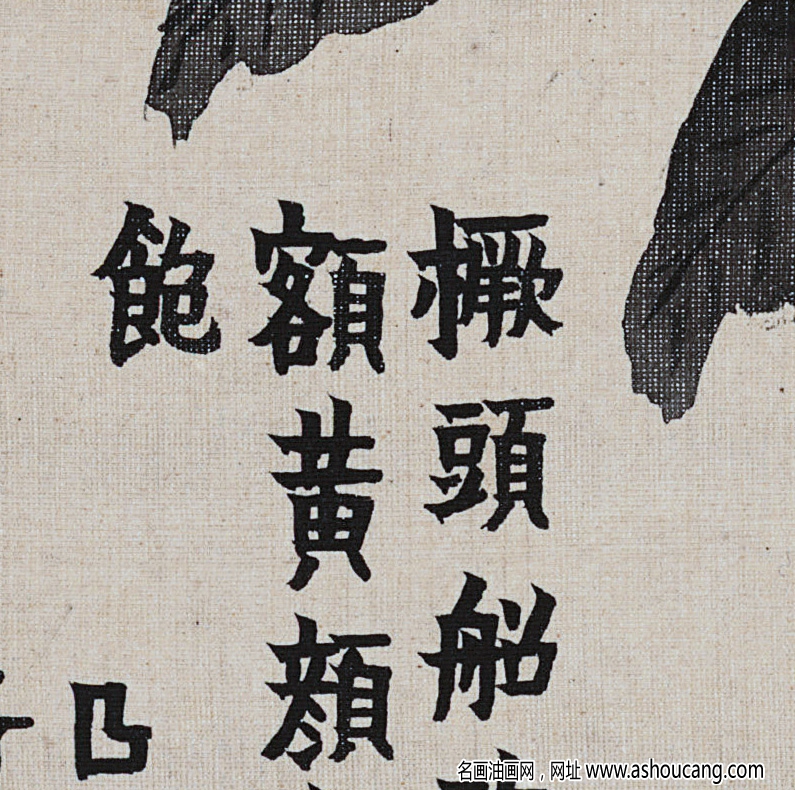 橛頭船
額黄顔
飽
名画油画网，网址 www.ashoucang.com